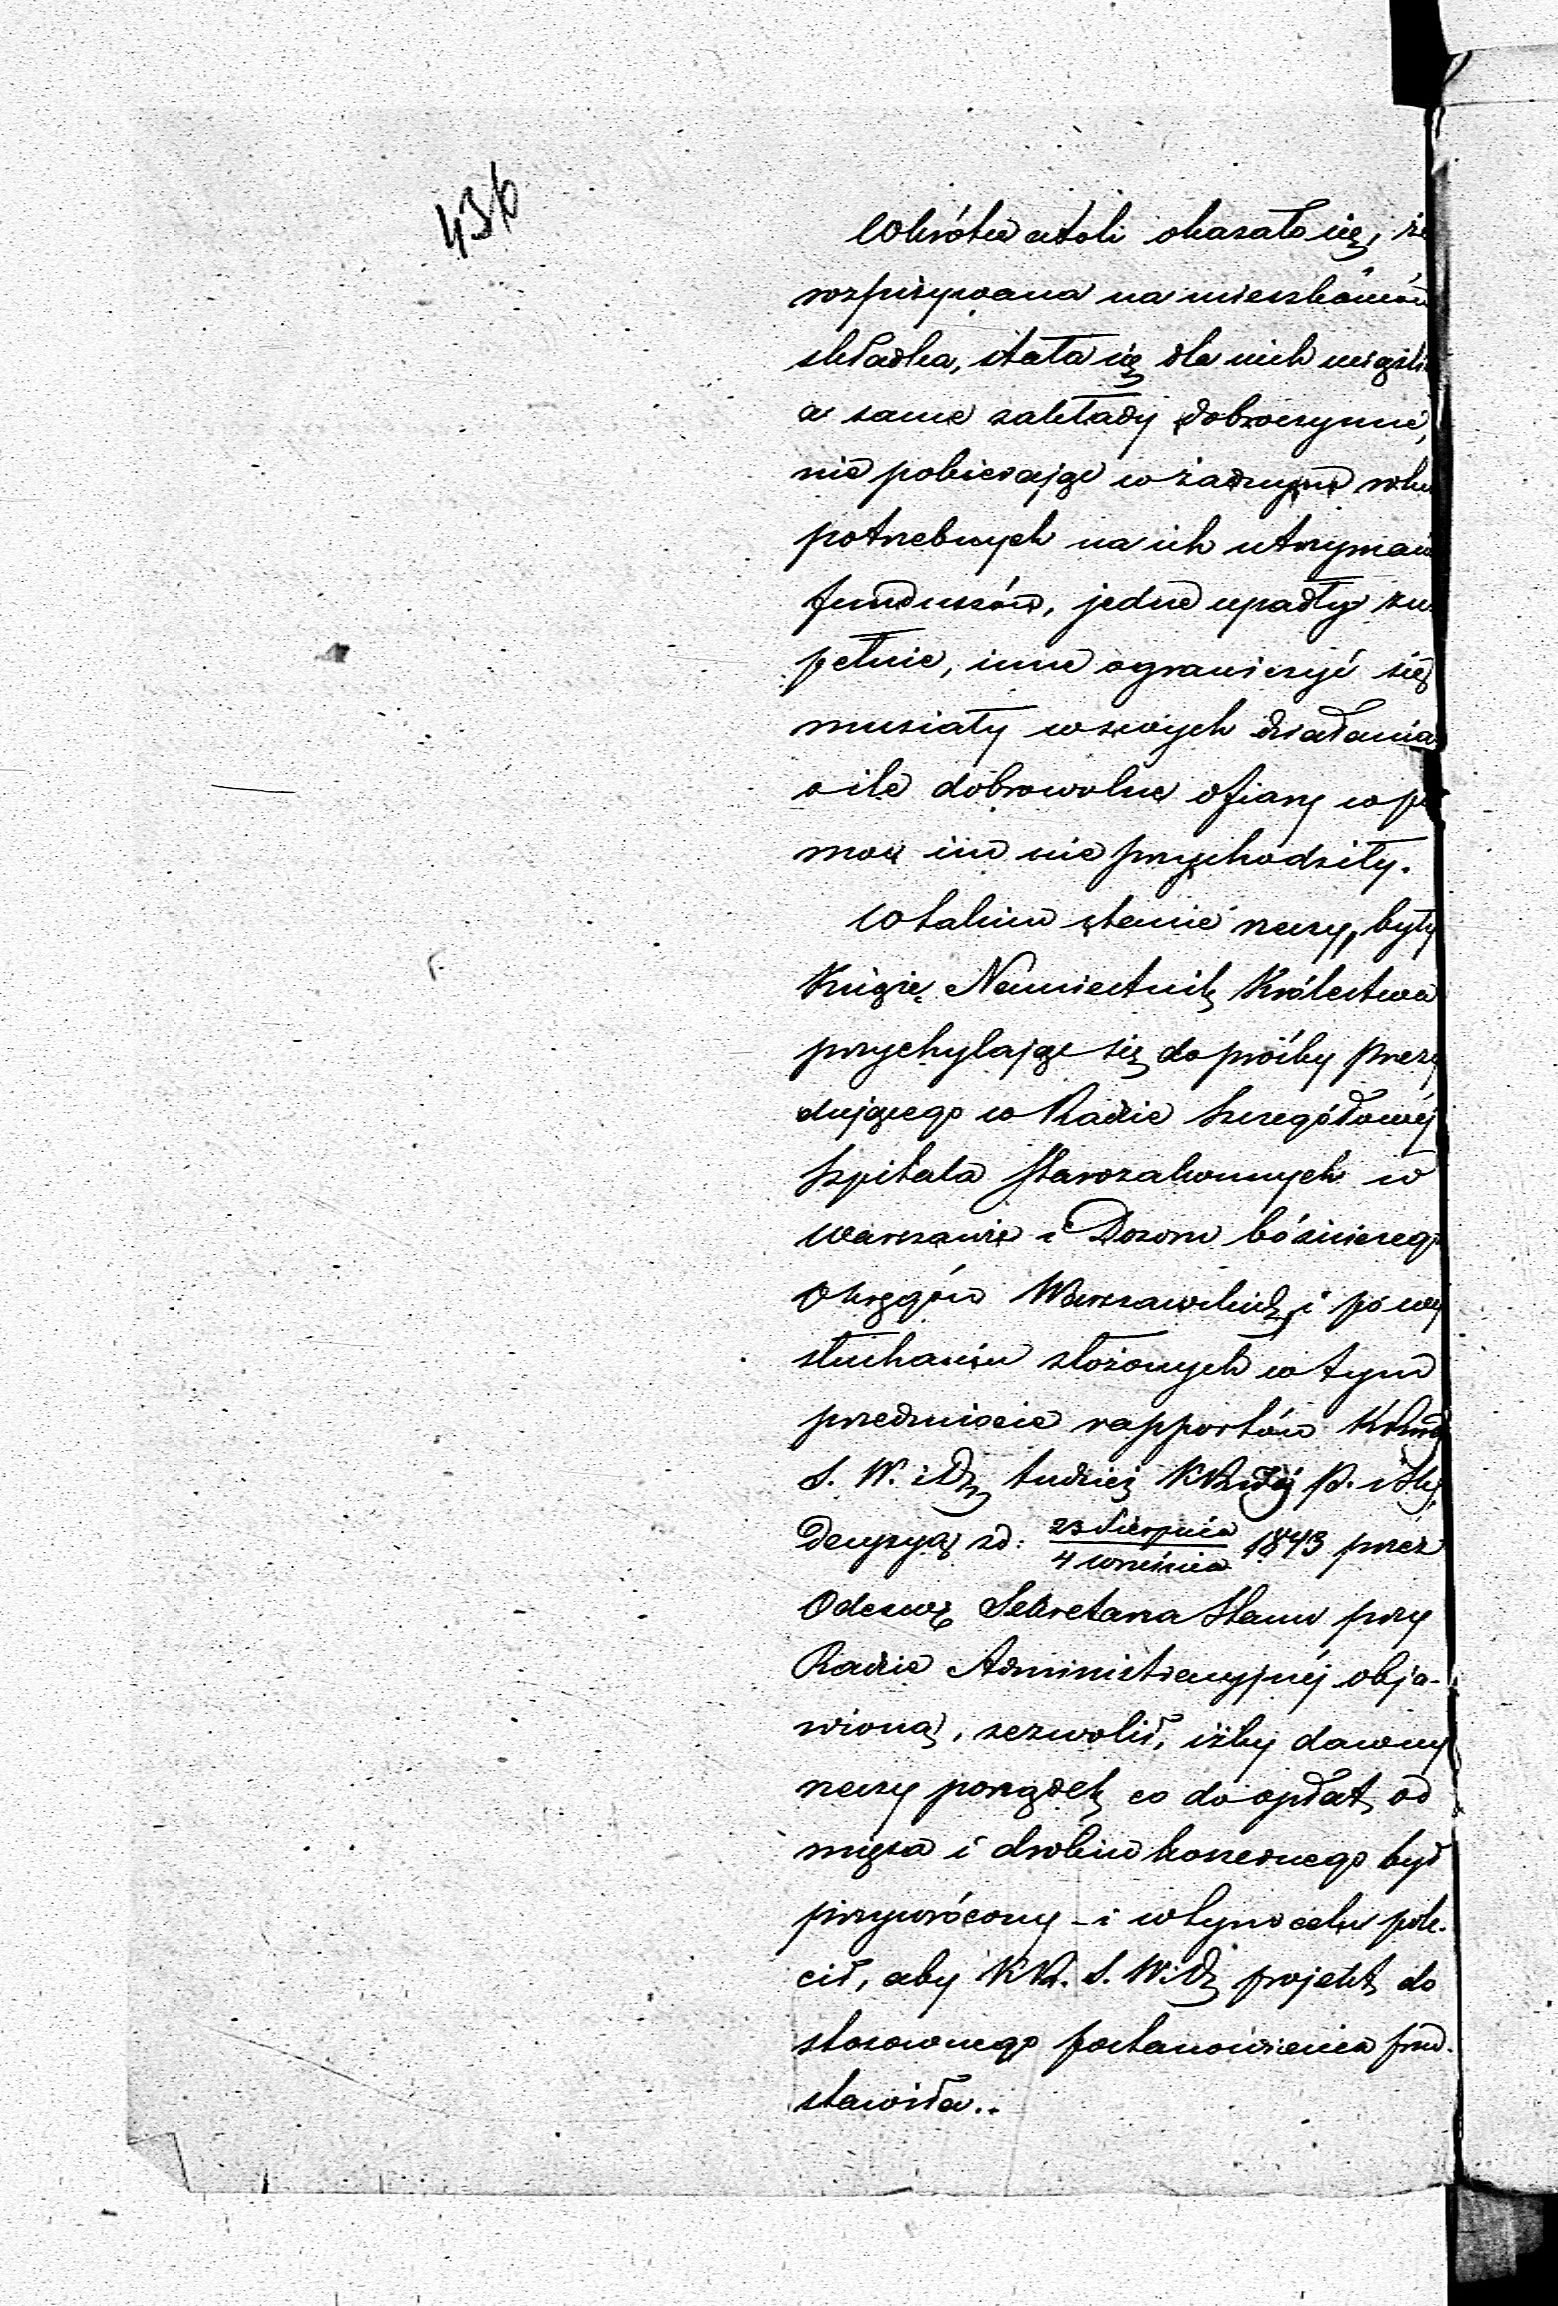 436
Wkrótce atoli okazało się, że
rozpisywana na mieszkańców
składka, stała się dla nich uciążli
a same zakłady dobroczynne,
nie pobierając w żadnym roku
potrzebnych na ich utrzymani
funduszów, jedne upadły zu
pełnie, inne ograniczyć się
musiały w swych działania
o ile dobrowolne ofiary w po
moc im nie przychodziły.
W takim stanie rzeczy, były
Książę Namiestnik Królestwa
przychylając się do prośby Prezy
dującego w Radzie Szczegółowéj
Szpitala Starozakonnych w
Warszawie i Dozoru bóżniczego
Okręgów Warszawskich, i po wy
słuchaniu złożonych w tym
przedmiocie rapportów KRząd
S. W. i D. tudzież KRząd P. i Sk.
Decyzyą zd: 23 Sierpnia / 4 Września 1843 przez
Odezwę Sekretarza Stanu przy
Radzie Administracyjnéj obja-
wioną, zezwolił, iżby dawny
rzeczy porządek co do opłat od
mięsa i drobiu koszernego był
przywrócony - i w tym celu pole-
cił, aby KR. S. W. i D. projekt do
stosownego postanowienia przed-
stawiła..